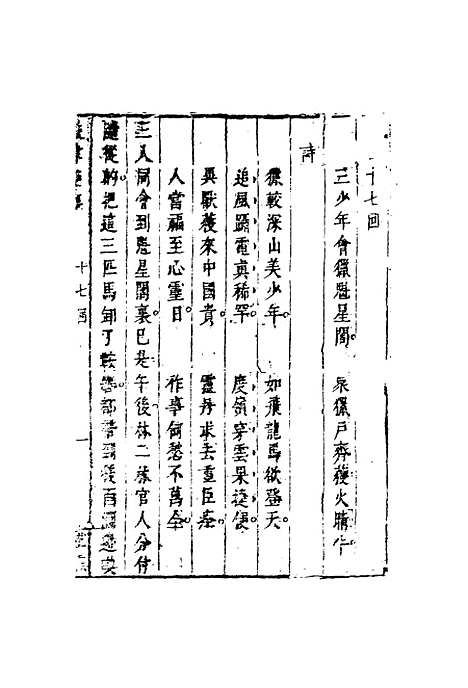 十七回
三少年會獵魁星閣 衆獵戶齊獲火睛牛
詩
獵較深山美少年 如飛龍馬欲登天
追風躡電真稀罕 度嶺穿雲果捷便
異獸獲來中國貴 靈丹求去重臣
人當福至心靈日 作事何愁不萬全
三人同會到魁星閣裏已是午後林二官人分付
隨後的把這三匹馬卸了鞍轡都帶到後
十七回 一